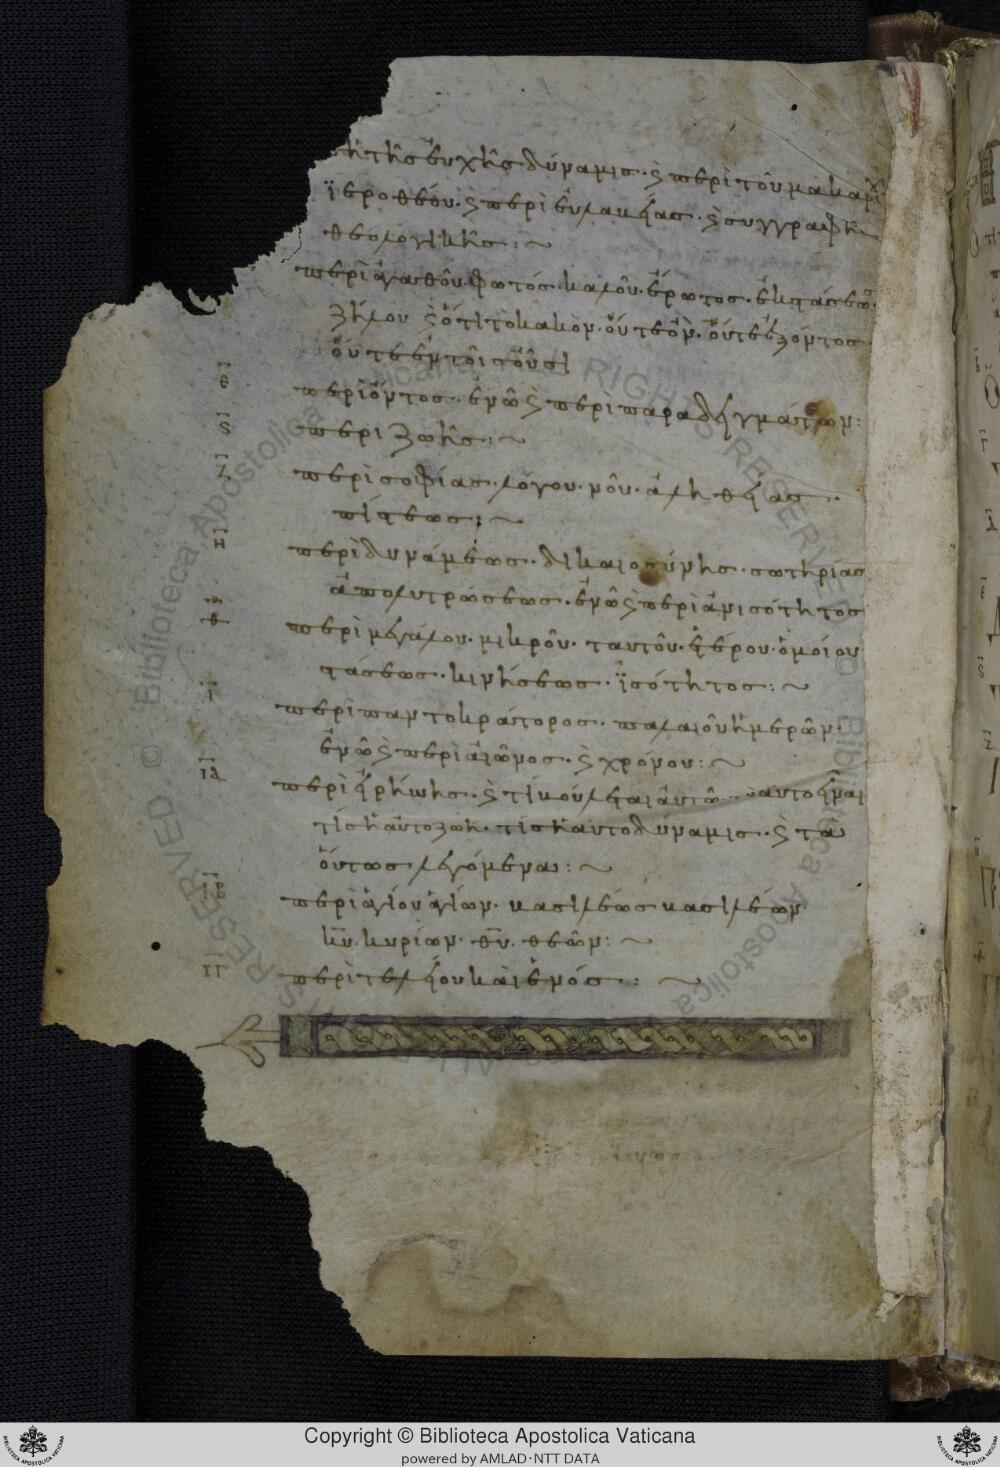 ἡ τῆς εὐχῆς δύναμις· ϗ περὶ τοῦ μακαρί
ϊεροθέου· ϗ περὶ εὐλαβείας· ϗ συγγραφῆς
θεολογικῆς:~
περὶ ἀγαθοῦ· φωτός· καλοῦ· ἔρωτος· ἐκστάσεως·
ζήλου ϗ ὅτι τὸ κακὸν· οὔτε ὂν· οὔτε ἐξ ὄντος·
οὔτε ἐν τοῖς οὖσι
ε περὶ ὄντος· ἐν ᾧ ϗ περὶ παραδειγμάτων:
ϛ περὶ ζωῆς:~
ζ περὶ σοφίας· λόγου· νοῦ· ἀληθείας·
πίστεως:~
η περὶ δυνάμεως· δικαιοσύνης· σωτηρίας
ἀπολυτρώσεως· ἐν ᾧ ϗ περὶ ἀνισότητος
θ περὶ μεγάλου· μικροῦ· ταυτοῦ· ἑτέρου· ὁμοίου
στάσεως· κινήσεως· ϊσότητος:~
ι περὶ παντοκράτορος· παλαιοῦ ἡμερῶν·
ἐν ᾧ ϗ περὶ αἰῶνος· ϗ χρόνου:~
ια περὶ εἰρήνης· ϗ τί βούλεται αὐτῶ αυτοεῖναι
τίς ἡ αὐτοζωὴ· τίς ἡ αυτοδύναμις· ϗ τὰ
οὕτως λεγόμενα:~
ιβ περὶ ἁγίου ἁγίων· βασιλέως βασιλέων·
κῦ· κυρίων· θῦ· θεῶν:~
ιγ περὶ τελείου καὶ ἑνός:~
Copyright © Biblioteca Apostolica Vaticana
powered by AMLAD·NTT DATA